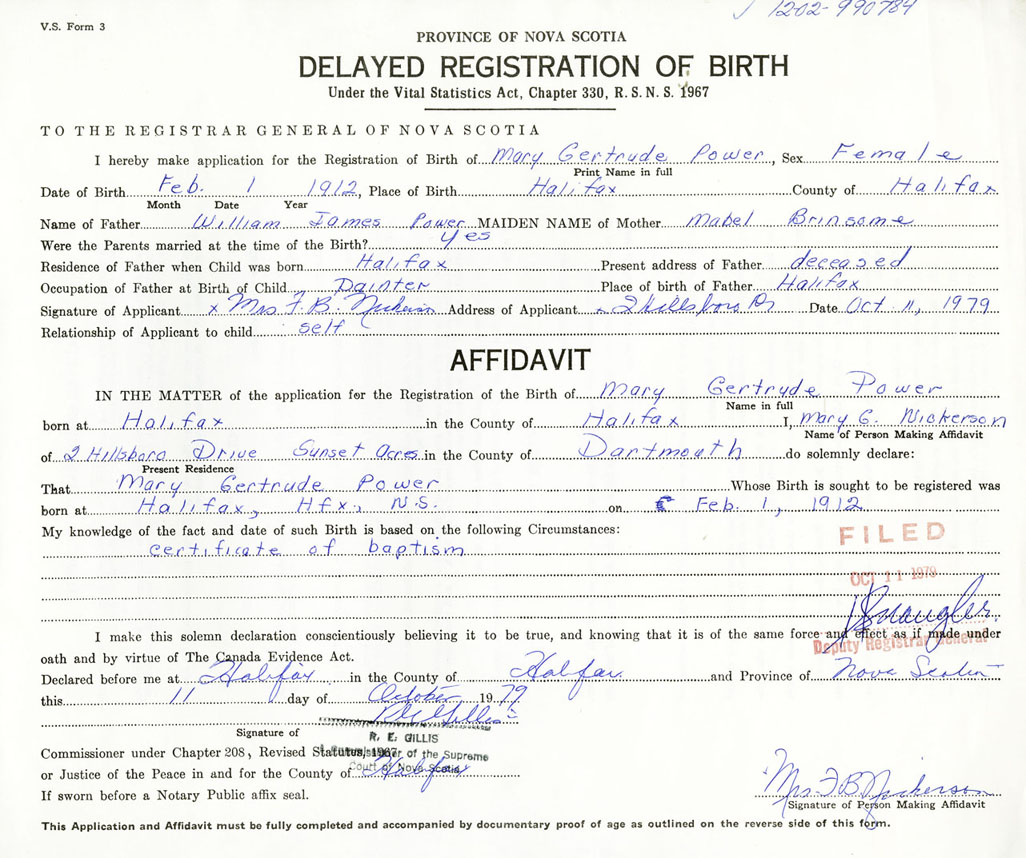 V.S. Form 3
√ 1202-990784
PROVINCE OF NOVA SCOTIA
DELAYED REGISTRATION OF BIRTH
Under the Vital Statistics Act, Chapter 330, R.S.N.S. 1967
TO THE REGISTRAR GENERAL OF NOVA SCOTIA
I hereby make application for the Registration of Birth of Mary Gertrude Power, Sex Female
Print Name in full
Date of Birth Feb. 1 1912, Place of Birth Halifax County of Halifax
Month Date Year
Name of Father William James Power MAIDEN NAME of Mother Mabel Brinsome
Were the Parents married at the time of the Birth? yes
Residence of Father when Child was born Halifax Present address of Father deceased
Occupation of Father at Birth of Child Painter Place of birth of Father Halifax
Signature of Applicant x Mrs F. B. Nickerson Address of Applicant 2 Hillsboro Dr Date Oct 11, 1979
Relationship of Applicant to child self
AFFIDAVIT
IN THE MATTER of the application for the Registration of the Birth of Mary Gertrude Power
Name in full
born at Halifax in the County of Halifax I, Mary G. Nickerson
Name of Person Making Affidavit
of 2 Hillsboro Drive Sunset Acres in the County of Dartmouth do solemnly declare:
Present Residence
That Mary Gertrude Power Whose Birth is sought to be registered was
born at Halifax, Hfx., N.S. on Feb. 1, 1912
My knowledge of the fact and date of such Birth is based on the following Circumstances:
certificate of baptism
FILED
OCT 11 1979
I make this solemn declaration conscientiously believing it to be true, and knowing that it is of the same force and effect as if made under
Deputy Registrar General
oath and by virtue of The Canada Evidence Act.
Declared before me at Halifax in the County of Halifax and Province of Nova Scotia
this 11 day of October 1979
R E Gillis
Signature of
R. E. GILLIS
Commissioner under Chapter 208, Revised Statutes, 1967
of the Supreme
Court of Nova Scotia
or Justice of the Peace in and for the County of Halifax
If sworn before a Notary Public affix seal.
Mrs. F B Nickerson
Signature of Person Making Affidavit
This Application and Affidavit must be fully completed and accompanied by documentary proof of age as outlined on the reverse side of this form.